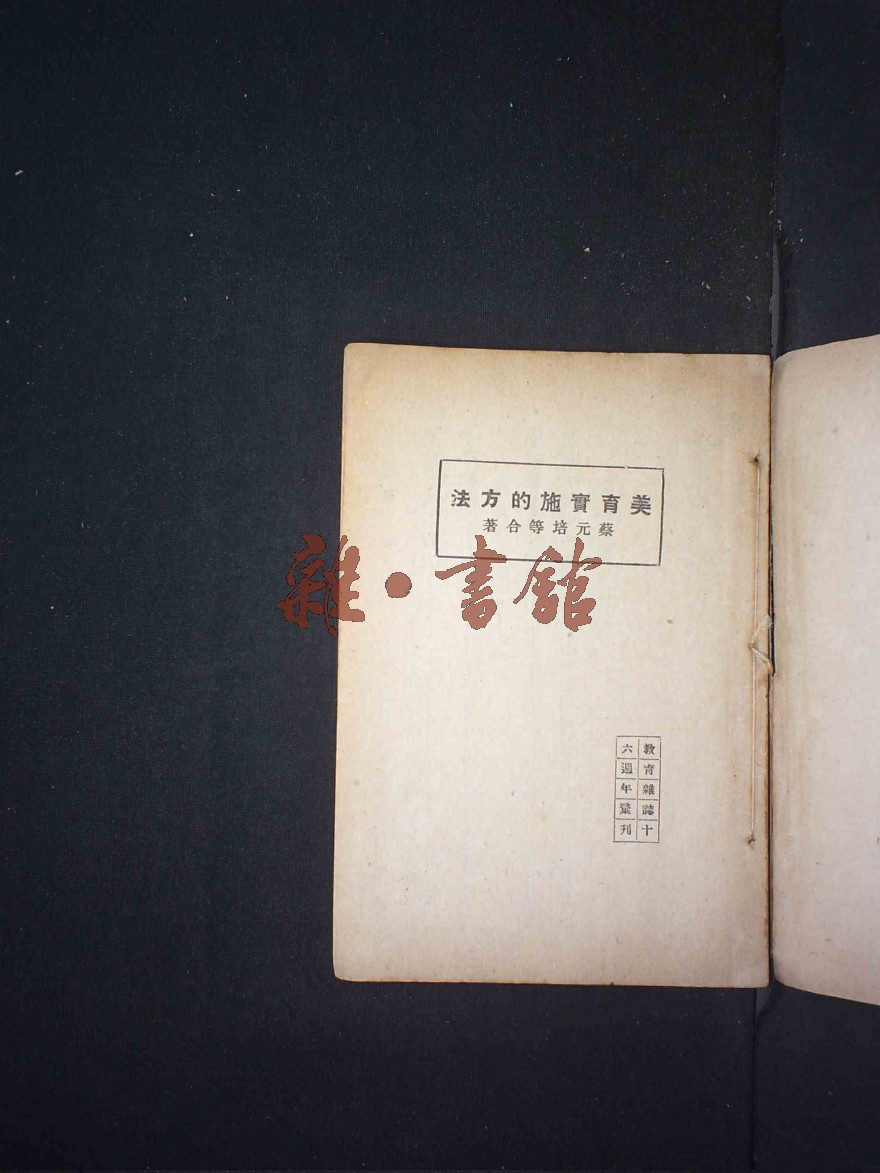 美育實施的方法
蔡元培等合著
雜·書館
教育雜誌十
六週年彙刊